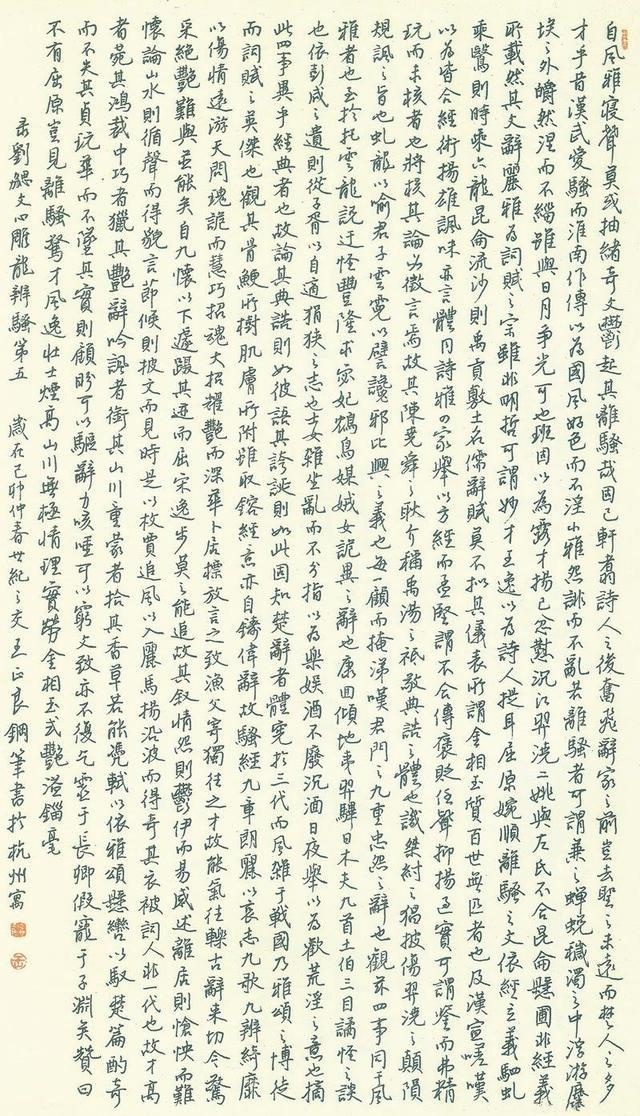 自風雅寝聲莫或抽緒奇文鬱起其離騷哉固已軒翥詩人之後奮飛辭家之前豈去聖之未遠而楚人之多
才乎昔漢武愛騷而淮南作傳以為國風好色而不淫小雅怨誹而不亂若離騷者可謂兼之蟬蛻穢濁之中浮游塵
埃之外皭然涅而不緇雖與日月爭光可也班固以為露才揚己忿懟沉江羿澆二姚與左氏不合昆侖懸圃非經義
所載然其文辭麗雅為詞賦之宗雖非明哲可謂妙才王逸以為詩人提耳屈原婉順離騷之文依經立義駟虬
乘鷖則時乘六龍昆侖流沙則禹貢敷土名儒辭賦莫不擬其儀表所謂金相玉質百世無匹者也及漢宣嗟嘆
以為皆合經術揚雄諷味亦言體同詩雅四家舉以方經而孟堅謂不合傳褒貶任聲抑揚過實可謂鑒而弗精
玩而未核者也將核其論必徵言焉故其陳堯舜之耿介稱禹湯之祗敬典誥之體也譏桀紂之猖披傷羿澆之顛隕
規諷之旨也虬龍以喻君子雲霓以譬讒邪比興之義也每一顧而掩涕嘆君門之九重忠怨之辭也觀茲四事同于風
雅者也至於托雲龍說迂怪豐隆求宓妃鴆鳥媒娀女詭異之辭也康回傾地夷羿彃日木夫九首土伯三目譎怪之談
也依彭咸之遺則從子胥以自適狷狹之志也士女雜坐亂而不分指以為樂娛酒不廢沉湎日夜舉以為歡荒淫之意也摘
此四事異乎經典者也故論其典誥則如彼語其誇誕則如此固知楚辭者體憲於三代而風雜于戰國乃雅頌之博徒
而詞賦之英傑也觀其骨鯁所樹肌膚所附雖取鎔經意亦自鑄偉辭故騷經九章朗麗以哀志九歌九辯綺靡
以傷情遠游天問瑰詭而慧巧招魂大招耀艷而深華卜居標放言之致漁父寄獨往之才故能氣往轢古辭來切今驚
采絕艷難與並能矣自九懷以下遽躡其迹而屈宋逸步莫之能追故其叙情怨則鬱伊而易感述離居則愴怏而難
懷論山水則循聲而得貌言節候則披文而見時是以枚賈追風以入麗馬揚沿波而得奇其衣被詞人非一代也故才高
者菀其鴻裁中巧者獵其艷辭吟諷者銜其山川童蒙者拾其香草若能憑軾以倚雅頌懸轡以馭楚篇酌奇
而不失其貞玩華而不墜其實則顧盼可以驅辭力咳唾可以窮文致亦不復乞靈于長卿假寵于子淵矣贊曰
不有屈原豈見離騷驚才風逸壯士煙高山川無極情理實勞金相玉式艷溢錙毫
录劉勰文心雕龍辨騷第五 歲在己卯仲春世紀之交王正良鋼筆書於杭州寓